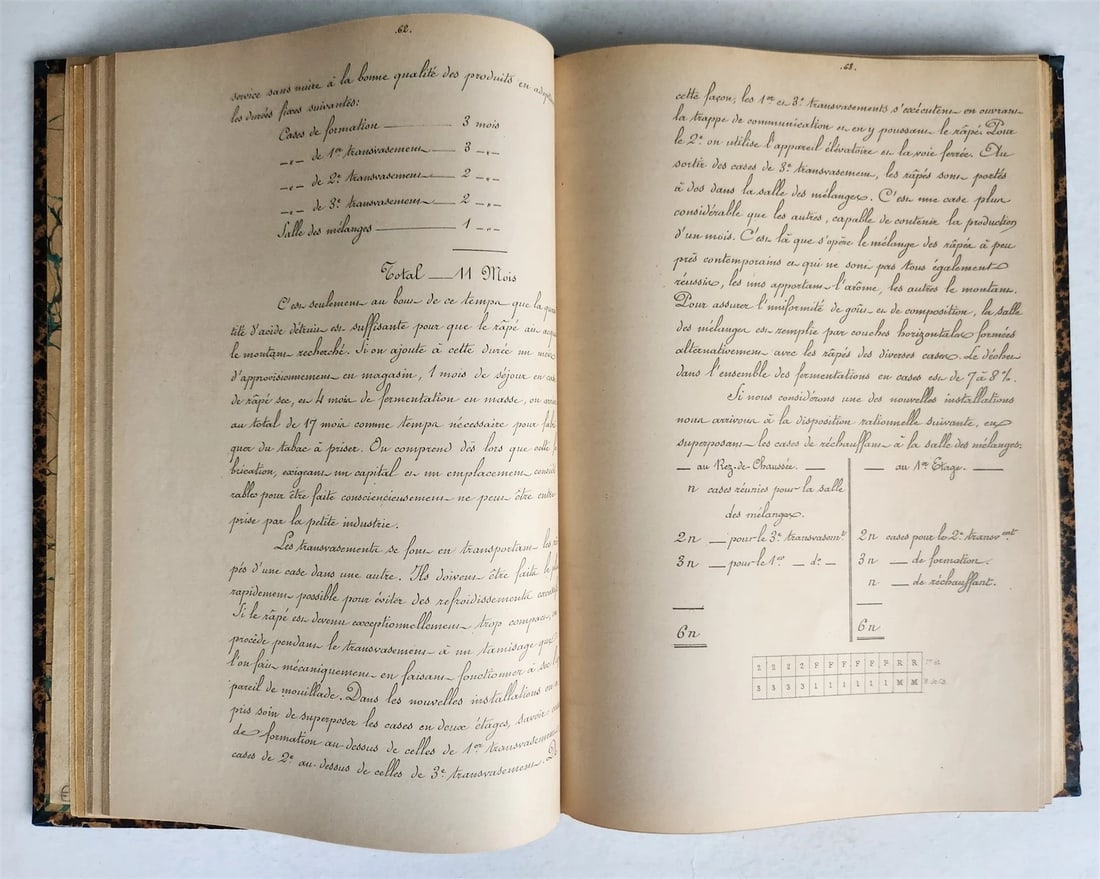 .62.
service sans nuire à la bonne qualité des produits en
les durées fixes suivantes:
Cases de formation 3 mois
_"_ de 1er transvasement 3 _"_
_"_ de 2e transvasement 2 _"_
_"_ de 3e transvasement 2 _"_
Salle des mélanges 1 _"_
Total 11 Mois
C'est seulement au bout de ce temps que la
tité d'acide détruit est suffisante pour que le râpé ait
le montant recherché. Si on ajoute à cette durée un mois
d'approvisionnement en magasin, 1 mois de séjour en
de râpé sec, et 4 mois de fermentation en masse, on
au total de 17 mois comme temps nécessaire pour
quer du tabac à priser. On comprend dès lors que cette
brication, exigeant un capital et un emplacement
rables pour être faite consciencieusement ne peut être
prise par la petite industrie.
Les transvasements se font en transportant les
pés d'une case dans une autre. Ils doivent être faits le
rapidement possible pour éviter des refroidissements
Si le râpé est devenu exceptionnellement trop compact,
procède pendant le transvasement à un tamisage que
l'on fait mécaniquement en faisant fonctionner à
pareil de mouillade. Dans les nouvelles installations on
pris soin de superposer les cases en deux étages, savoir:
de formation au-dessus de celles de 1er transvasement
cases de 2e au-dessus de celles de 3e transvasement. De
.63.
cette façon, les 1er et 3e transvasements s'exécutent en ouvrant
la trappe de communication et en y poussant le râpé. Pour
le 2e on utilise l'appareil élévatoire et la voie ferrée. Au
sortir des cases de 3e transvasement, les râpés sont portés
à dos dans la salle des mélanges. C'est une case plus
considérable que les autres, capable de contenir la production
d'un mois. C'est là que s'opère le mélange des râpés à peu
près contemporains et qui ne sont pas tous également
réussis, les uns apportant l'arôme, les autres le montant.
Pour assurer l'uniformité de goût et de composition, la salle
des mélanges est remplie par couches horizontales formées
alternativement avec les râpés des diverses cases. Le déchet
dans l'ensemble des fermentations en cases est de 7 à 8 %.
Si nous considérons une des nouvelles installations
nous arrivons à la disposition rationnelle suivante, en
superposant les cases de réchauffant à la salle des mélanges:
au Rez-de-Chaussée.
n cases réunies pour la salle
des mélanges.
2n _ pour le 3e transvasemt
3n _ pour le 1er _ do _
6n
au 1er Etage.
2n cases pour le 2e transvemt
3n _ de formation.
n _ de réchauffant.
6n
2 2 2 2 F F F F F F R R 1er et.
3 3 3 3 1 1 1 1 1 1 M M R. de Ch.